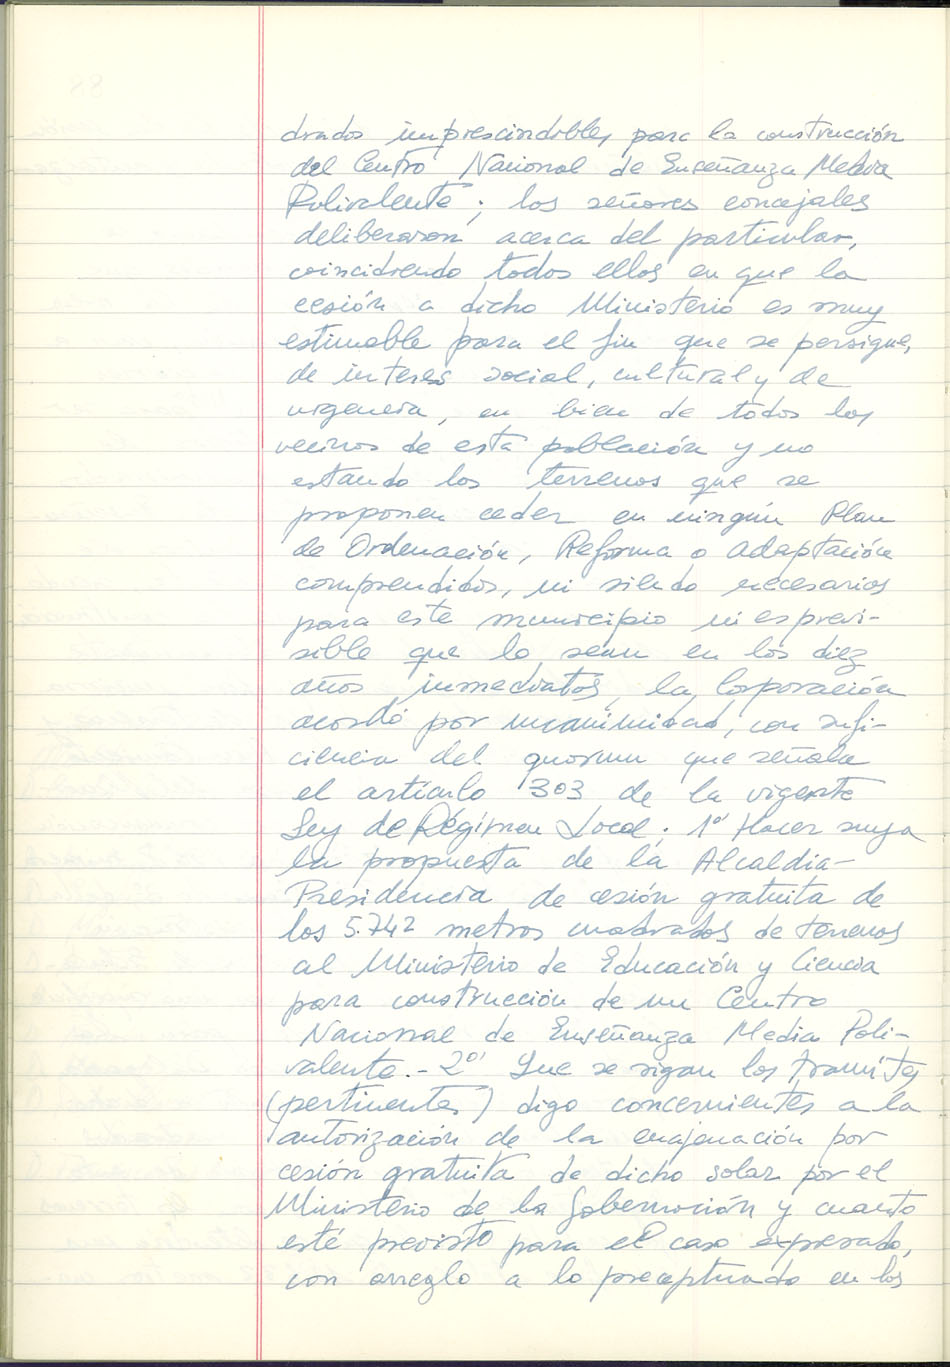 drados imprescindibles para la construcción
del Centro Nacional de Enseñanza Media
Polivalente; los señores concejales
deliberaron acerca del particular,
coincidiendo todos ellos en que la
cesión a dicho Ministerio es muy
estimable para el fin que se persigue,
de interés social, cultural y de
urgencia, en bien de todos los
vecinos de esta población y no
estando los terrenos que se
proponen ceder en ningún Plan
de Ordenación, Reforma o adaptación
comprendidos, ni siendo necesarios
para este municipio ni es previ-
sible que lo sean en los diez
años inmediatos, la Corporación
acordó por unanimidad, con sufi-
ciencia del quorum que señala
el artículo 303 de la vigente
Ley de Régimen Local: 1º Hacer suya
la propuesta de la Alcaldia-
Presidencia de cesión gratuita de
los 5.742 metros cuadrados de terrenos
al Ministerio de Educación y Ciencia
para construcción de un Centro
Nacional de Enseñanza Media Poli-
valente.- 2º Que se sigan los tramites
(pertinentes) digo concernientes a la
autorización de la enajenación por
cesión gratuita de dicho solar por el
Ministerio de la Gobernación y cuanto
esté previsto para el caso expresado,
con arreglo a lo preceptuado en los